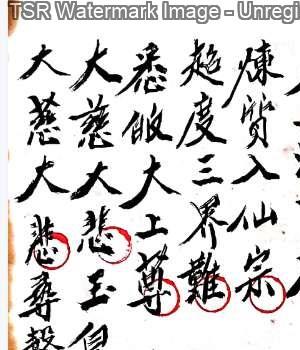 TSR Watermark Image - Unregi
煉質入仙宗
超度三界難
悉皈大上尊
大慈大悲玉皇
大慈大悲尋聲